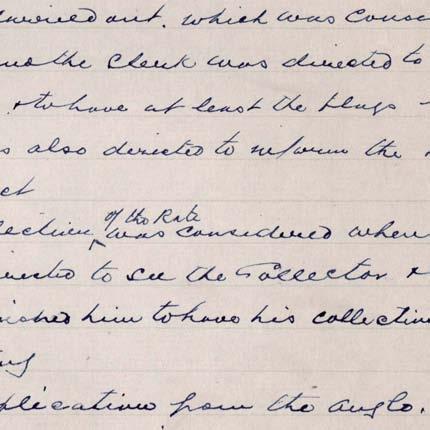 carried out. which was cons
and the Clerk was directed to
& to have at least the plugs
s also directed to inform the
ct
lection of the Rate was considered when
irected to see the Collector &
ished him to have his collection
ing
plication from the Anglo.